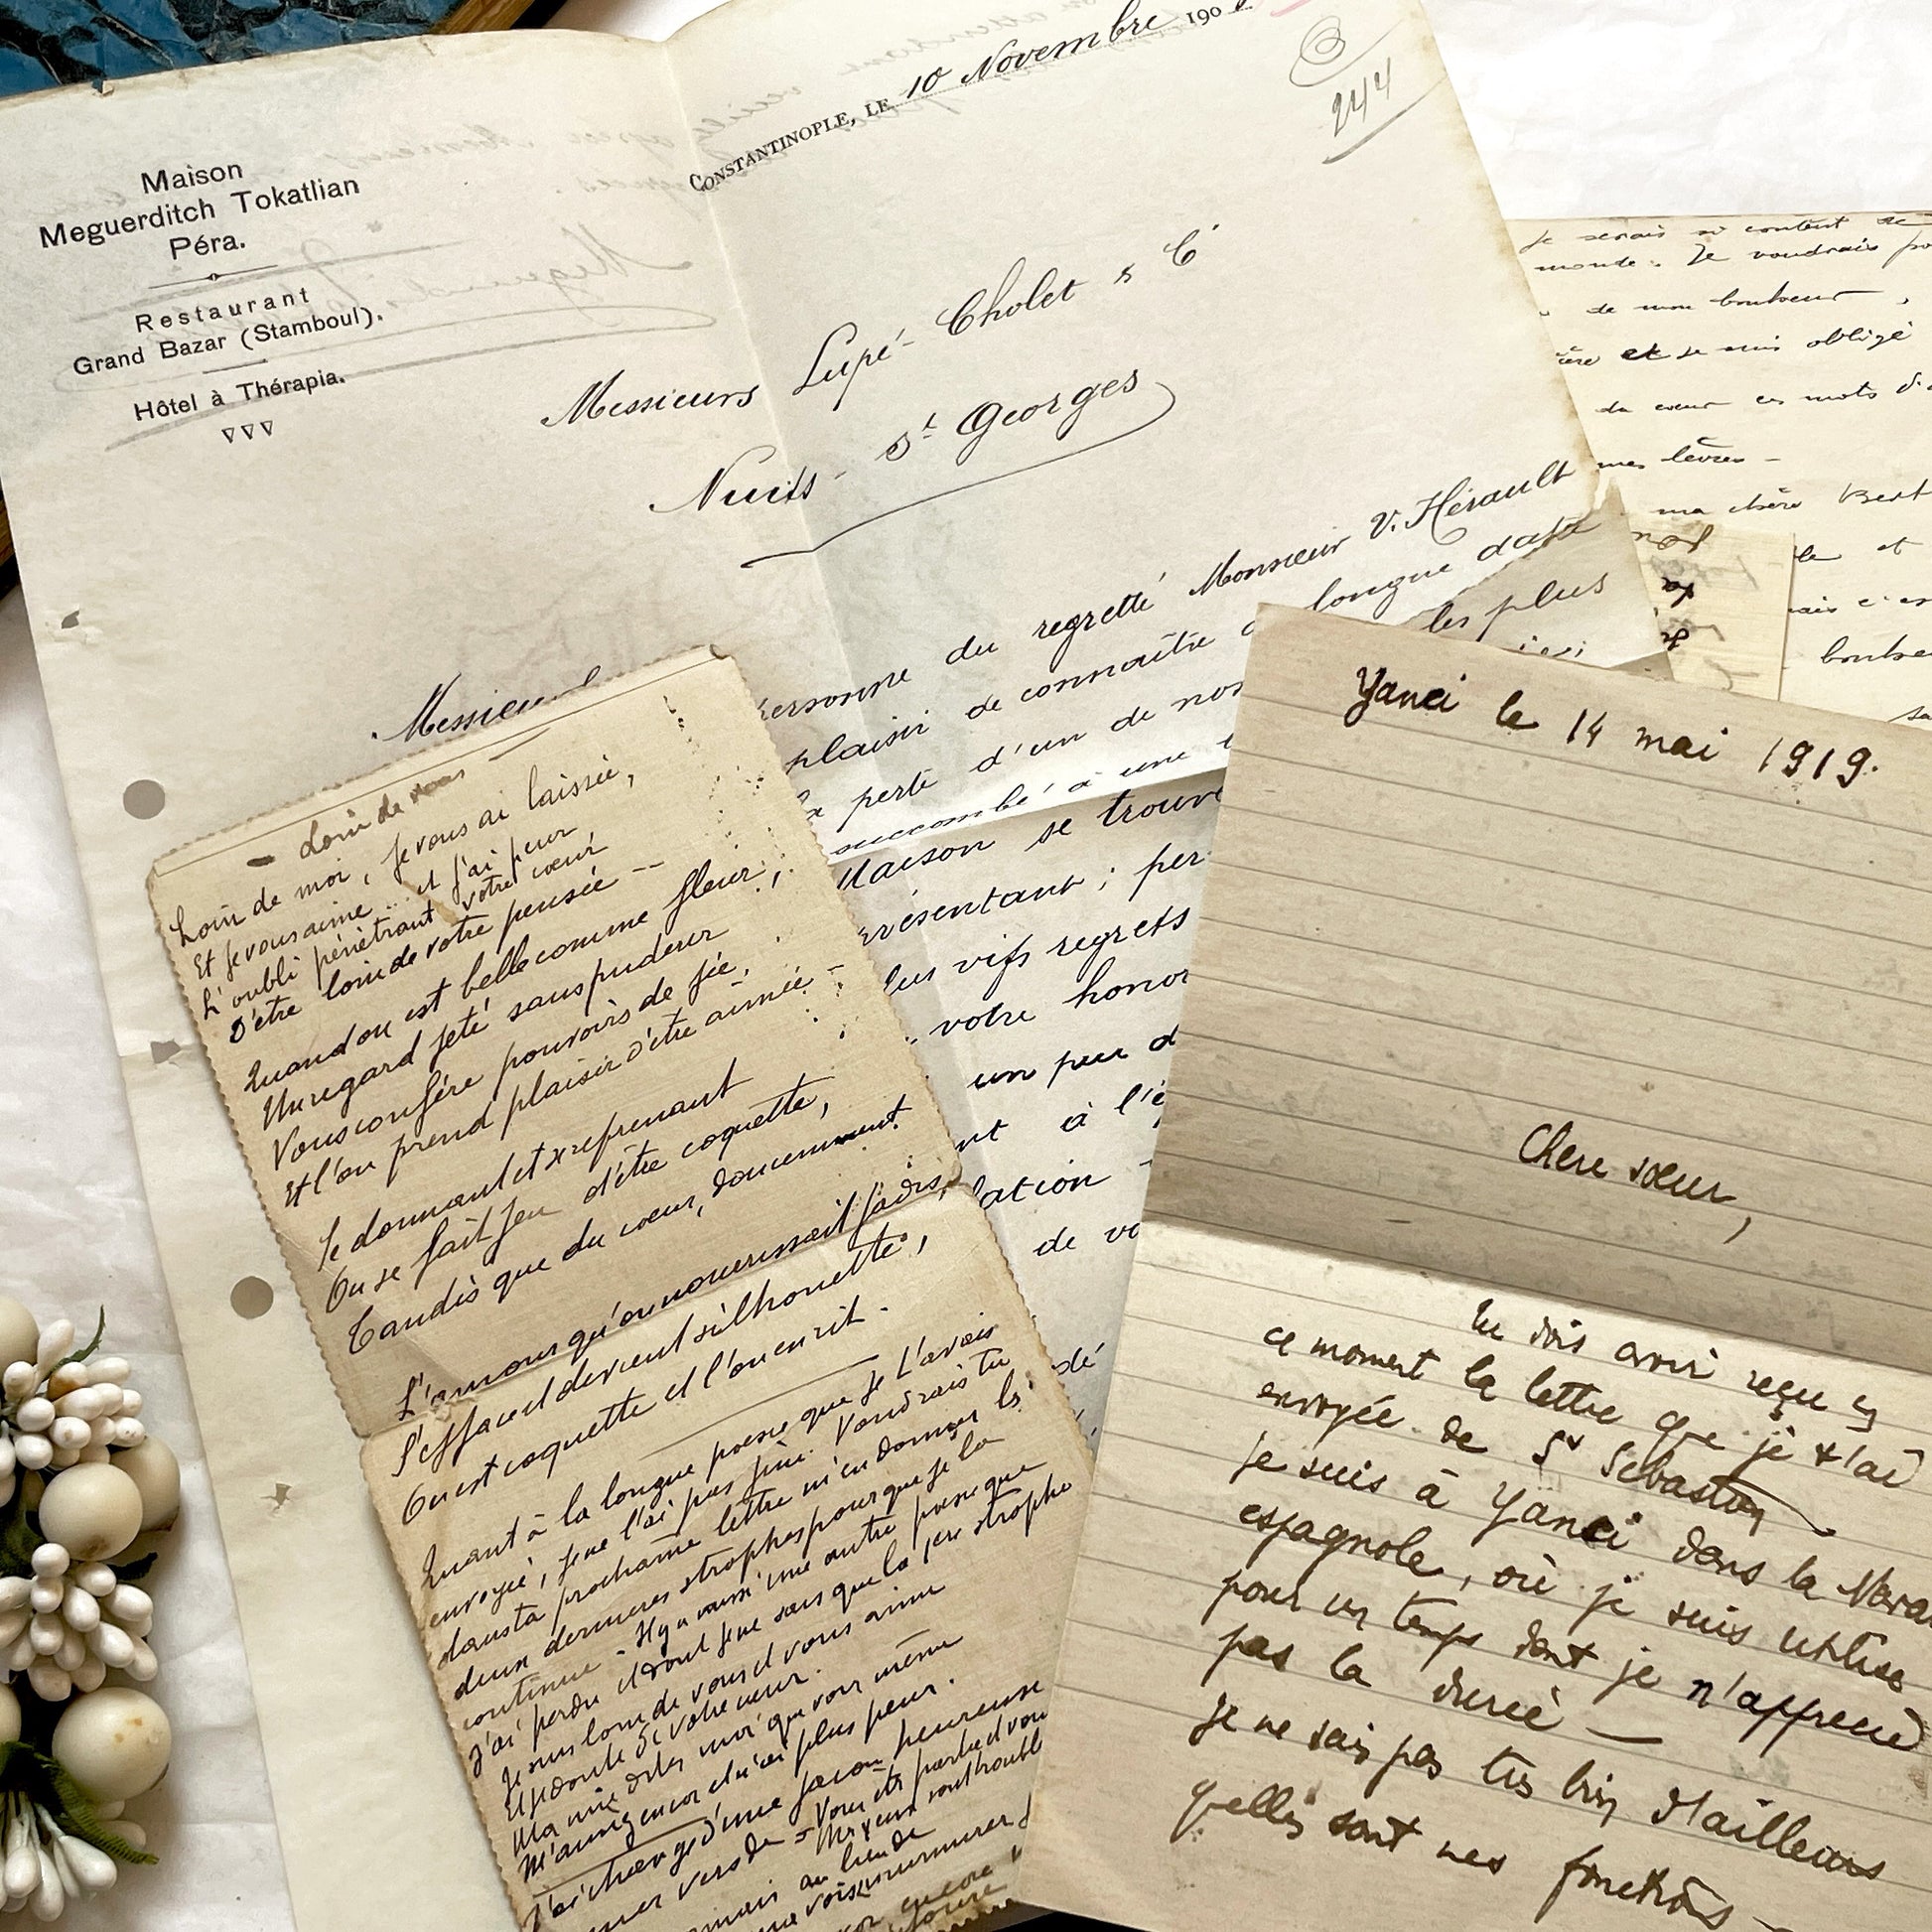 Maison
Meguerditch Tokatlian
Péra.
Restaurant
Grand Bazar (Stamboul).
Hôtel à Thérapia.
Constantinople, le 10 Novembre 190
244
Messieurs Lupé-Cholet & Cⁱᵉ
Nuits-St Georges
Messieurs
personne du regretté Monsieur V. Hérault
plaisir de connaître longue date
la perte d'un de nos les plus
succombé à une
Maison se trouve
résentant ; per
lus vifs regrets
votre honor
un peu d
nt à l'é
lation
de vo
dé
je serais si content de
monde. Je voudrais po
de mon bonheur,
ère et je suis obligé
du cœur ces mots d'a
mes lèvres -
ma chère Bert
le et
mais c'es
bonhe
- Loin de vous -
Loin de moi, je vous ai laissée,
Et je vous aime... et j'ai peur
L'oubli pénétrant votre cœur,
D'être loin de votre pensée --
Quand on est belle comme fleur,
Un regard jeté sans pudeur
Vous confère pouvoirs de fée,
Et l'on prend plaisir d'être aimée -
Se donnant et se reprenant
On se fait jeu d'être coquette,
Tandis que du cœur, doucement
L'amour qu'on nourrissait jadis,
S'efface et devient silhouette,
On est coquette et l'on en rit.
Quant à la longue poesie que je t'avais
envoyée, je ne l'ai pas fini. Voudrais tu
dans ta prochaine lettre m'en donner les
deux dernieres strophes pour que je la
continue - Il y a aussi une autre poesie que
j'ai perdu et dont je ne sais que la 1ere strophe
Je suis loin de vous et vous aime
Et je doute de votre cœur.
Ma mie dites moi que voir même
M'aimez encor et n'ai plus peur.
J'ai changé d'une façon heureuse
mer vers de = Vous etes partie et vou
au lieu de
murmurer
Yanci le 14 mai 1919.
Chere sœur,
Tu dois avoir reçu en
ce moment la lettre que je t'ai
envoyée de St Sebastien
je suis à Yanci dans la Nava
espagnole, où je suis utilise
pour un temps dont je n'apprecie
pas la durée -
Je ne sais pas très bien d'ailleurs
quelles sont mes fonctions -